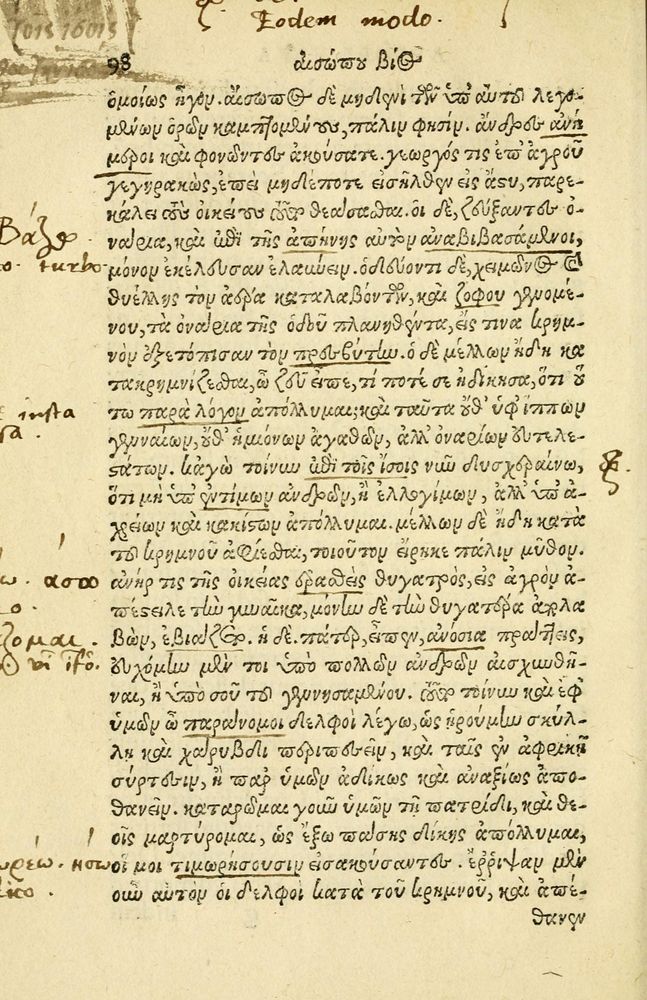 Eodem modo.
98 αἰσώπου βίος
ὁμοίως ἦγον. αἴσωπος δὲ μηδενὶ τῶν ὑπ' αὐτοῦ λεγο-
μένων ὁρῶν καμπτομένους, πάλιν φησίν. ἄνδρες ἀνή-
μεροι καὶ φονῶντες ἀκούσατε. γεωργός τις ἐπ' ἀγροῦ
γεγηρακώς, ἐπεὶ μηδέποτε εἰσῆλθεν εἰς ἄστυ, παρε-
κάλει τοὺς οἰκείους τοῦτο θεάσασθαι. οἱ δὲ, ζεύξαντες ὀ-
νάρια, καὶ ἐπὶ τῆς ἀπήνης αὐτὸν ἀναβιβασάμενοι,
μόνον ἐκέλευσαν ἐλαύνειν. ὁδεύοντι δὲ, χειμῶνος καὶ
θυέλλης τὸν ἀέρα καταλαβόντων, καὶ ζόφου γενομέ-
νου, τὰ ὀνάρια τῆς ὁδοῦ πλανηθέντα, εἴς τινα κρημ-
νὸν ἐξετόπισαν τὸν πρεσβύτην. ὁ δὲ μέλλων ἤδη κα
τακρημνίζεσθαι, ὦ ζεῦ εἶπε, τί ποτέ σε ἠδίκησα, ὅτι οὕ
τω παρὰ λόγον ἀπόλλυμαι; καὶ ταῦτα οὔθ' ὑφ' ἵππων
γενναίων, οὔθ' ἡμιόνων ἀγαθῶν, ἀλλ' ὀναρίων εὐτελε-
στάτων. κἀγὼ τοίνυν ἐπὶ τοῖς ἴσοις νῦν δυσχεραίνω,
ὅτι μὴ ὑπ' ἐντίμων ἀνδρῶν, ἢ ἐλλογίμων, ἀλλ' ὑπ' ἀ-
χρείων καὶ κακίστων ἀπόλλυμαι. μέλλων δὲ ἤδη κατὰ
τοῦ κρημνοῦ ἀφίεσθαι, τοιοῦτον εἴρηκε πάλιν μῦθον.
ἀνήρ τις τῆς οἰκείας ἐρασθεὶς θυγατρὸς, εἰς ἀγρὸν ἀ-
πέστειλε τὴν γυναῖκα, μόνην δὲ τὴν θυγατέρα ἀπολα
βὼν, ἐβιάζετο. ἡ δὲ. πάτερ, εἶπεν, ἀνόσια πράττεις,
εὐχόμην μέν τοι ὑπὸ πολλῶν ἀνδρῶν αἰσχυνθῆ-
ναι, ἢ ὑπὸ σοῦ τοῦ γεννησαμένου. τοῦτο τοίνυν καὶ ἐφ'
ὑμῶν ὦ παράνομοι δελφοὶ λέγω, ὡς ᾑρούμην σκύλ-
λῃ καὶ χαρύβδει περιπεσεῖν, καὶ ταῖς ἐν ἀφρικῇ
σύρτεσιν, ἢ παρ' ὑμῶν ἀδίκως καὶ ἀναξίως ἀπο-
θανεῖν. καταρῶμαι γοῦν ὑμῶν τῇ πατρίδι, καὶ θε-
οῖς μαρτύρομαι, ὡς ἔξω πάσης δίκης ἀπόλλυμαι,
οἵ μοι τιμωρήσουσιν εἰσακούσαντες. ἔρριψαν μὲν
οὖν αὐτὸν οἱ δελφοὶ κατὰ τοῦ κρημνοῦ, καὶ ἀπέ-
θανεν
turbo
insta
ζομαι.